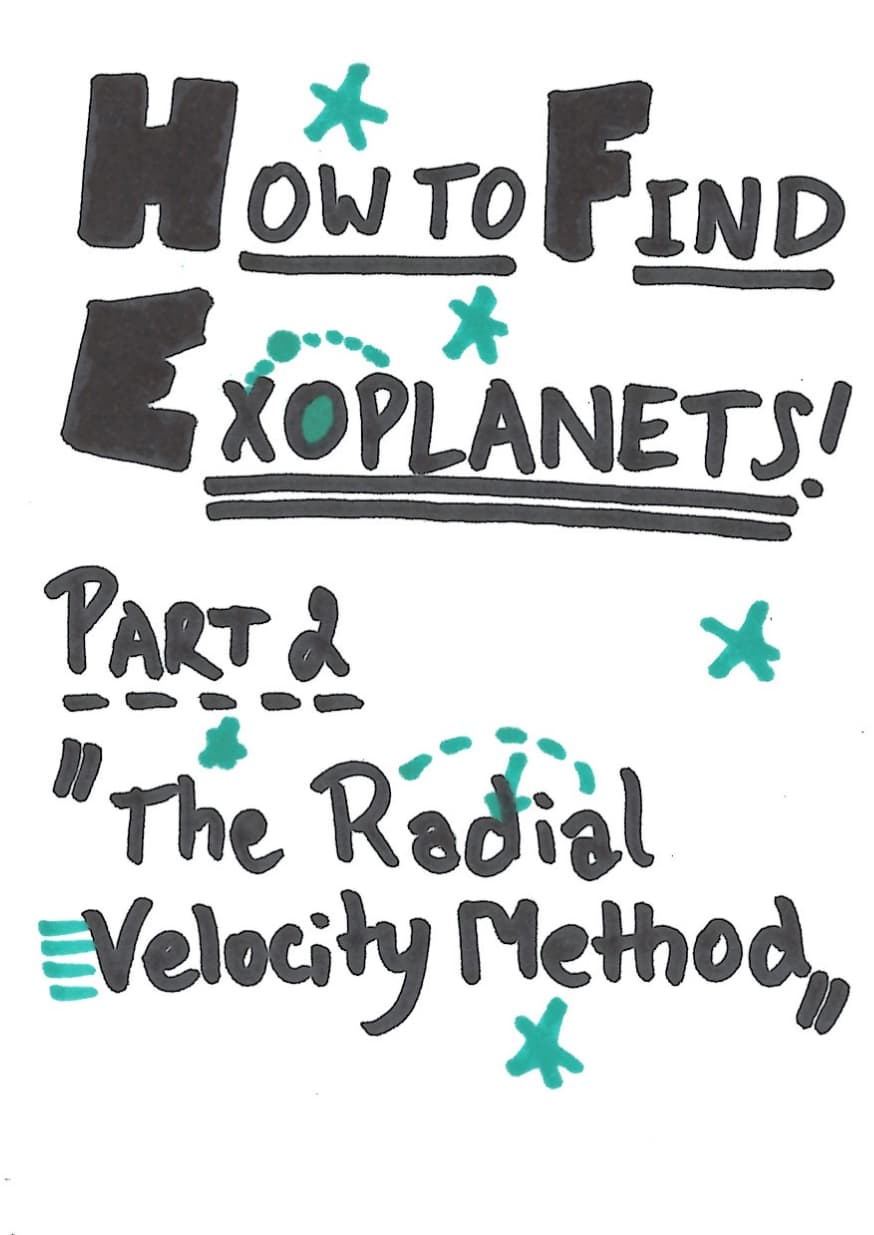 How to Find
Exoplanets!
Part 2
"The Radial
Velocity Method"